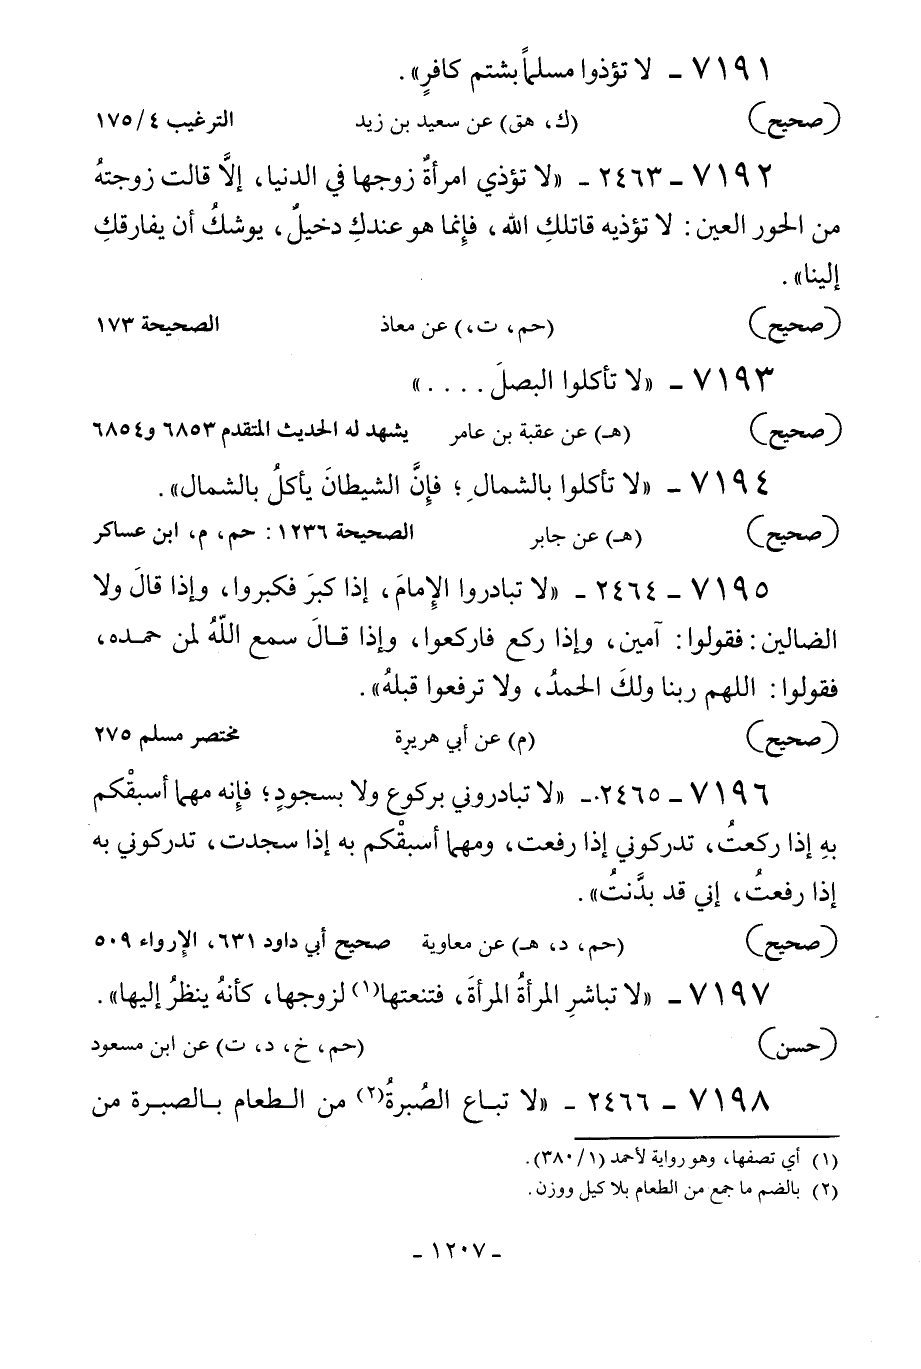 ٧١٩١ ـ لا تؤذوا مسلماً بشتم كافرٍ» .
(صحيح) (ك، هق) عن سعيد بن زيد الترغيب ٤/ ١٧٥
٧١٩٢ ـ ٢٤٦٣ ـ «لا تؤذي امرأةٌ زوجها في الدنيا، إلَّا قالت زوجتهُ
من الحور العين: لا تؤذيه قاتلكِ الله، فإِنما هو عندكِ دخيلٌ، يوشكُ أن يفارقكِ
إلينا» .
(صحيح) (حم، ت،) عن معاذ الصحيحة ١٧٣
٧١٩٣ ـ «لا تأكلوا البصلَ . . . . »
(صحيح) (هـ) عن عقبة بن عامر يشهد له الحديث المتقدم ٦٨٥٣ و٦٨٥٤
٧١٩٤ ـ «لا تأكلوا بالشمالِ ؛ فإِنَّ الشيطانَ يأكلُ بالشمال» .
(صحيح) (هـ) عن جابر الصحيحة ١٢٣٦: حم، م، ابن عساكر
٧١٩٥ ـ ٢٤٦٤ ـ «لا تبادروا الإِمامَ، إذا كبرَ فكبروا، وإذا قالَ ولا
الضالين: فقولوا: آمين، وإذا ركع فاركعوا، وإذا قـالَ سمع اللّهُ لمن حمـده،
فقولوا: اللهم ربنا ولكَ الحمدُ، ولا ترفعوا قبلهُ» .
(صحيح) (م) عن أبي هريرة مختصر مسلم ٢٧٥
٧١٩٦ ـ ٢٤٦٥ ـ «لا تبادروني بركوع ولا بسجودٍ؛ فإِنه مهما أسبقْكم
بهِ إذا ركعتُ، تدركوني إذا رفعت، ومهما أسبقْكم به إذا سجدت، تدركوني به
إذا رفعتُ، إني قد بدَّنتُ» .
(صحيح) (حم، د، هـ) عن معاوية صحيح أبي داود ٦٣١، الإِرواء ٥٠٩
٧١٩٧ ـ «لا تباشرِ المرأةُ المرأةَ، فتنعتها(١) لزوجها، كأنهُ ينظرُ إليها» .
(حسن) (حم، خ، د، ت) عن ابن مسعود
٧١٩٨ ـ ٢٤٦٦ ـ «لا تبـاع الصُبرةُ(٢) من الـطعام بـالصبـرة من
(١) أي تصفها، وهو رواية لأحمد (١/ ٣٨٠).
(٢) بالضم ما جمع من الطعام بلا كيل ووزن.
ـ ١٢٠٧ ـ